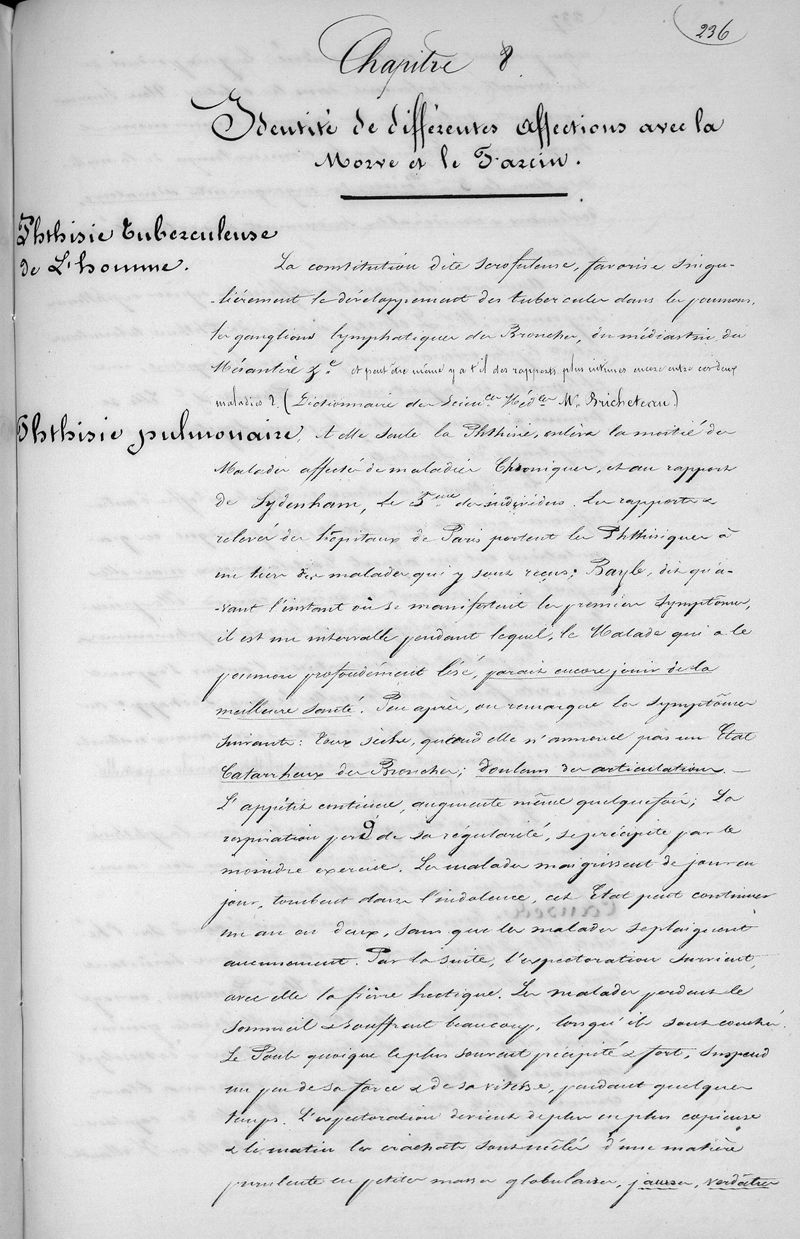 236
Chapitre 8
Identité de différentes affections avec la
Morve et le Farcin.
Phthisie tuberculeuse
de L'homme.
La constitution dite scrofuleuse, favorise singu-
-lièrement le développement des tubercules dans les poumons,
les ganglions lymphatiques des Bronches, du médiastin du
Mésentère &c. et peut être même y a t'il des rapports plus intimes encore entre ces deux
maladies ? (Dictionnaire des Scienc.es Méd.les Mr. Bricheteau.)
Phthisie pulmonaire.
A elle seule la Phthisie, enlève la moitié des
Malades affectés de maladies Chroniques, et au rapport
de Sydenham, le 5ème des individus. Les rapports &
relevés des hôpitaux de Paris portent les Phthisiques à
un tiers des malades qui y sont reçus; Bayle, dit qu'a-
-vant l'instant où se manifestent les premiers symptômes,
il est un intervalle pendant lequel, le Malade qui a le
poumon profondément lésé, parait encore jouir de la
meilleure santé. Peu après, on remarque les symptômes
suivants: toux sèche, quand elle n'annonce pas un Etat
Catarrheux des Bronches; douleurs des articulations. —
L'appétit continue, augmente même quelquefois; La
respiration perd de sa régularité, se précipite par le
moindre exercice. Les malades maigrissent de jour en
jour, tombent dans l'indolence, cet Etat peut continuer
un an ou deux, sans que les malades se plaignent
aucunement. Par la suite, l'expectoration survient,
avec elle la fièvre hectique. Les malades perdent le
sommeil & souffrent beaucoup, lorsqu'ils sont couchés.
Le Pouls quoique le plus souvent précipité & fort, suspend
un peu de sa force & de sa vitesse, pendant quelques
temps. L'expectoration devient de plus en plus copieuse
& le matin les crachats sont mêlés d'une matière
purulente en petites masses globuleuses, jaunes, verdâtres